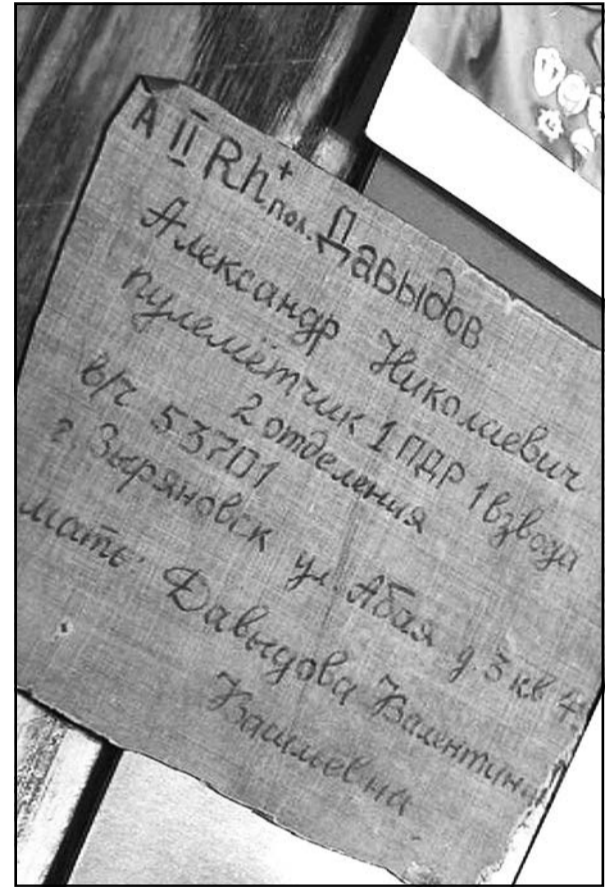 A II Rh⁺ пол. Давыдов
Александр Николаевич
пулемётчик 1 ПДР 1 взвода
2 отделения
в/ч 53701
г. Зыряновск ул. Абая д 3 кв
мать: Давыдова Валентина
Васильевна